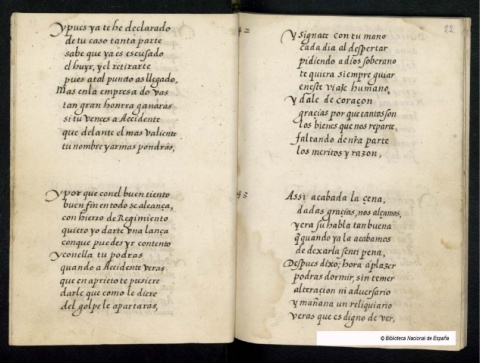 Y pues ya te he declarado
de tu caso tanta parte
sabe que ya es escusado
el huyr, y el retirarte
pues a tal punto as llegado,
Mas en la empresa do vas
tan gran honrra ganaras
si tu vences a Accidente
que delante el mas valiente
tu nombre y armas pondras,
Y por que con el buen tiento
buen fin en todo se alcança,
con hierro de Regimiento
quiero yo darte vna lança
con que puedes yr contento
Y con ella tu podras
quando a Accidente veras
que en aprieto te pusiere
darle que como le diere
del golpe le apartaras,
22
42
Y signate con tu mano
cada dia al despertar
pidiendo a dios soberano
te quiera siempre guiar
en este viaje humano,
Y dale de coraçon
gracias por que tantos son
los bienes que nos reparte,
faltando de nra parte
los meritos y razon,
43
Assi acabada la çena,
dadas gracias, nos alçamos,
y era su habla tan buena
q quando ya la acabamos
de dexarla senti pena,
Despues dixo; hora a plazer
podras dormir, sin temer
alteracion ni aduersario
y mañana un reliquiario
veras que es digno de ver,
© Biblioteca Nacional de España